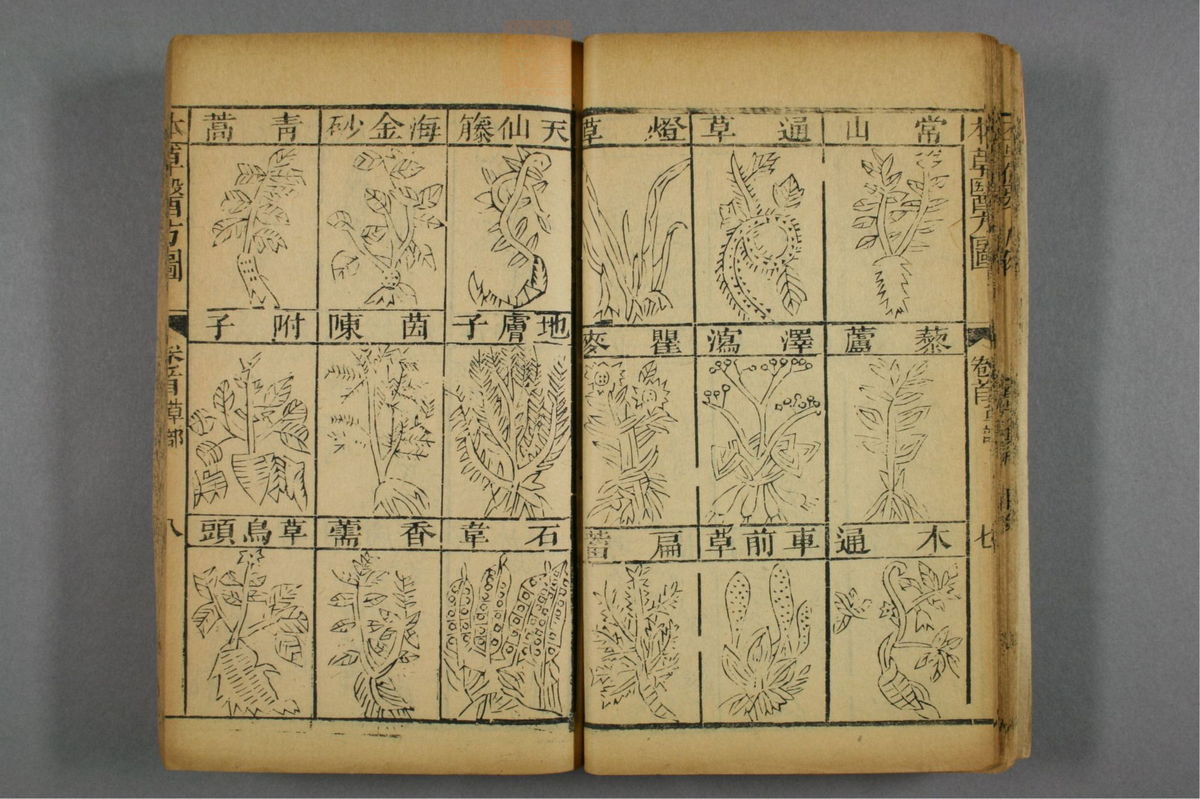 常山
通草
燈草
藜蘆
澤瀉
瞿麥
木通
車前草
扁蓄
本草醫方圖
卷首
七
天仙藤
海金砂
青蒿
地膚子
茵陳
附子
石韋
香薷
草烏頭
本草醫方圖
卷首草部
八